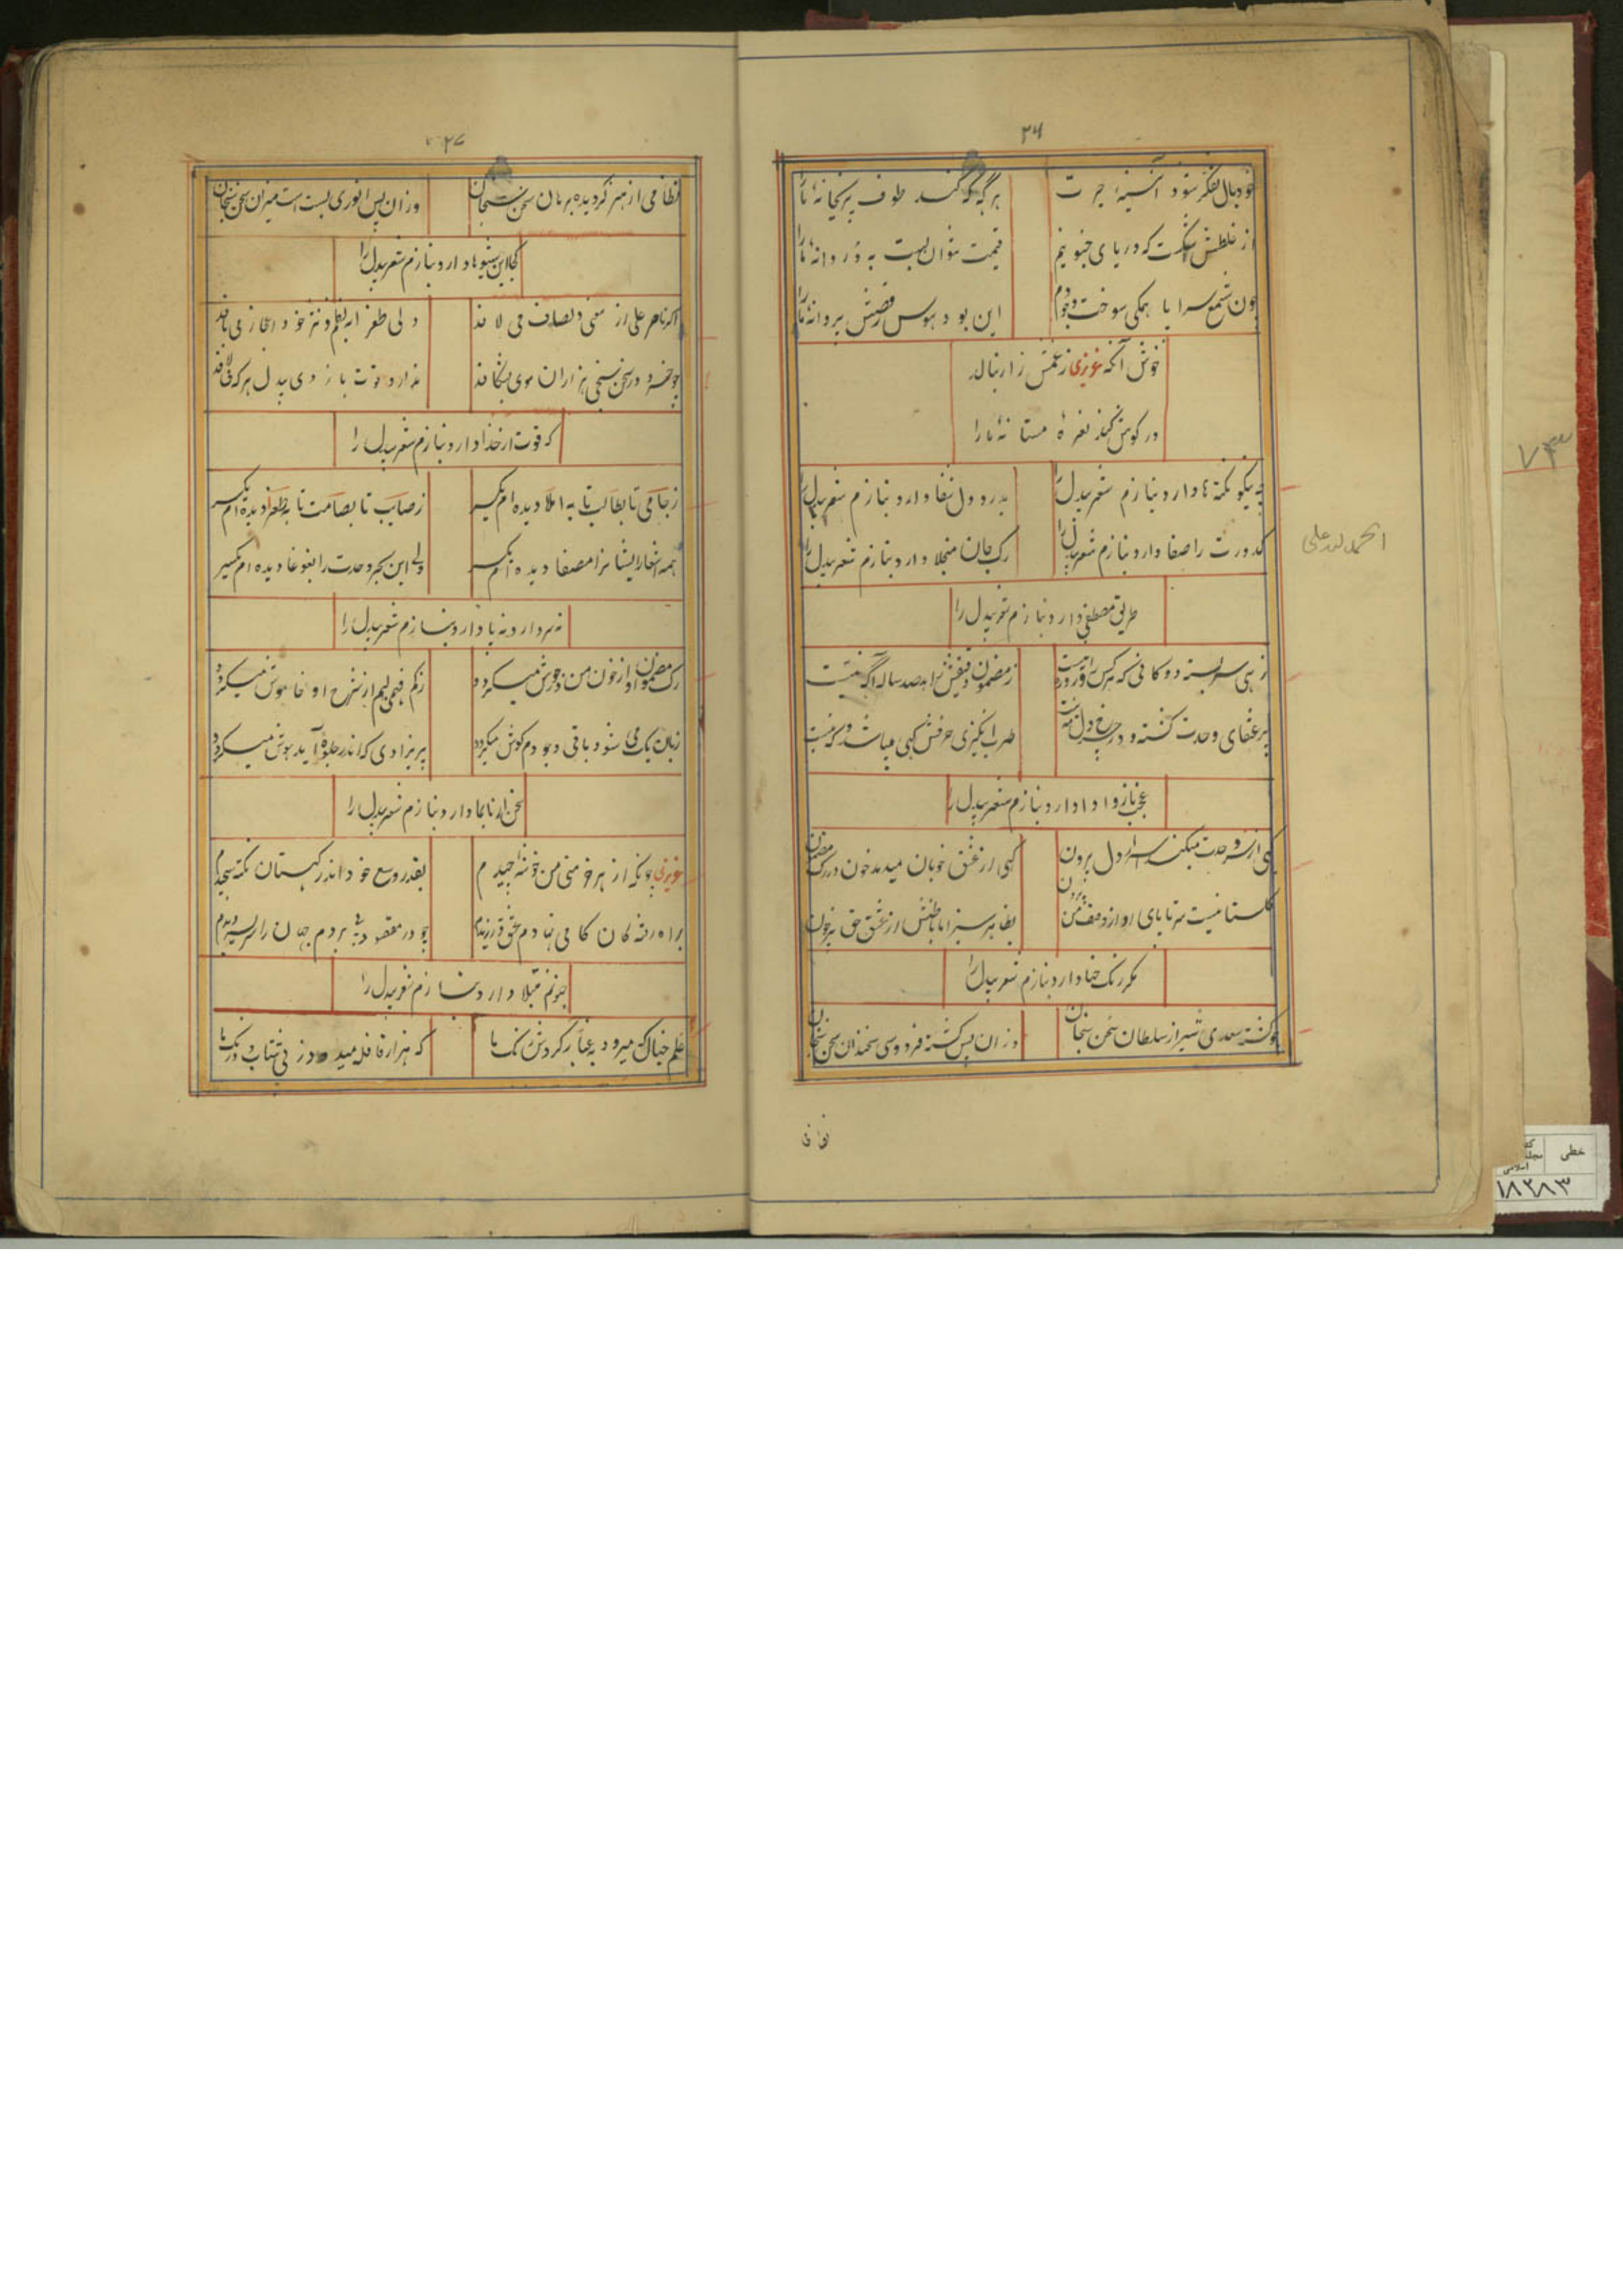 ۲۶
خود بال تفکر شود آئینهٔ حیرت
هر گه که کند طوف پریخانهٔ ما را
از غلطش اشکست که دریای جنونیم
قیمت نتوان بست به در دانهٔ ما را
چون شمع سراپا همگی سوخت وجودم
این بود هوس رقصش پروانهٔ ما را
خوش آنکه عزیزی ز غمش زار بنالد
در گوش کند نعرهٔ مستانهٔ ما را
چه نیکو نکته ها دارد بنازم شعر بیدل را
بدرد دل شفا دارد بنازم شعر بیدل را
کدورت را صفا دارد بنازم شعر بیدل را
رگ جان منجلا دارد بنازم شعر بیدل را
طریق مصطفی دارد بنازم شعر بیدل را
الحمد لله علی
ز مضمون دقیقش تا بصد ساله آگه نیست
پر عنقای وحدت گشته و در چرخ دل
طرب انگیزی حرفش گهی میباشد و گه نیست
عجب ناز و ادا دارد بنازم شعر بیدل را
گهی از سر وحدت میکند اسرار دل بیرون
گهی از عشق خوبان میدهد خون در رگ مضمون
گلستانیست سر تا پای او از وصف من بیرون
بظاهر سبز اما باطنش از عشق حق پرخون
مگر رنگ حنا دارد بنازم شعر بیدل را
چو گشته سعدی شیراز سلطان سخن سنجان
وزان پس گشته فردوسی سخندان سخن سنجان
۲۷
نظامی از هنر گردیده برهان سخن سنجان
وزان پس انوری بست است میزان سخن سنجان
کجا این شیوها دارد بنازم شعر بیدل را
اگر ناصر علی از معنی و تصاف می لافد
ولی طغرا به نظم و نثر خود اعجاز می بافد
چو خسرو در سخن سنجی هزاران موی بشکافد
ندارد قوت بازوی بیدل هر که می لافد
که قوت از خدا دارد بنازم شعر بیدل را
ز جامی تا بطالب تا به املا دیده ام یکسر
ز صایب تا بصامت تا به طغرا دیده ام یکسر
همه اشعار ایشانرا مصفا دیده ام یکسر
ولی این بحر وحدت را بغوغا دیده ام یکسر
نه سر دارد نه پا دارد بنازم شعر بیدل را
رگ مضمون او از خون من در جوش میگردد
ز کم فهمی لبم از شرح او خاموش میگردد
زبان یک می شود باقی وجودم گوش میگردد
پریزادی که اندر جلوه آید هوش میگردد
سخن از نابجا دارد بنازم شعر بیدل را
عزیزی چونکه از هر خرمنی من خوشها چیدم
بقدر وسع خود اندر گهستان نکته سنجیدم
براه رفته گان گامی نهادم عشق ورزیدم
چو در مقصود پی بردم جهان را سر بسر دیدم
جنونم مبتلا دارد بنازم شعر بیدل را
علم خیالک میرود به عنان گردش رنگ ما
که هزار قافله میدود ز پی شتاب و درنگ ما
نظا
۷۳
خطی
۱۸۳۸۳